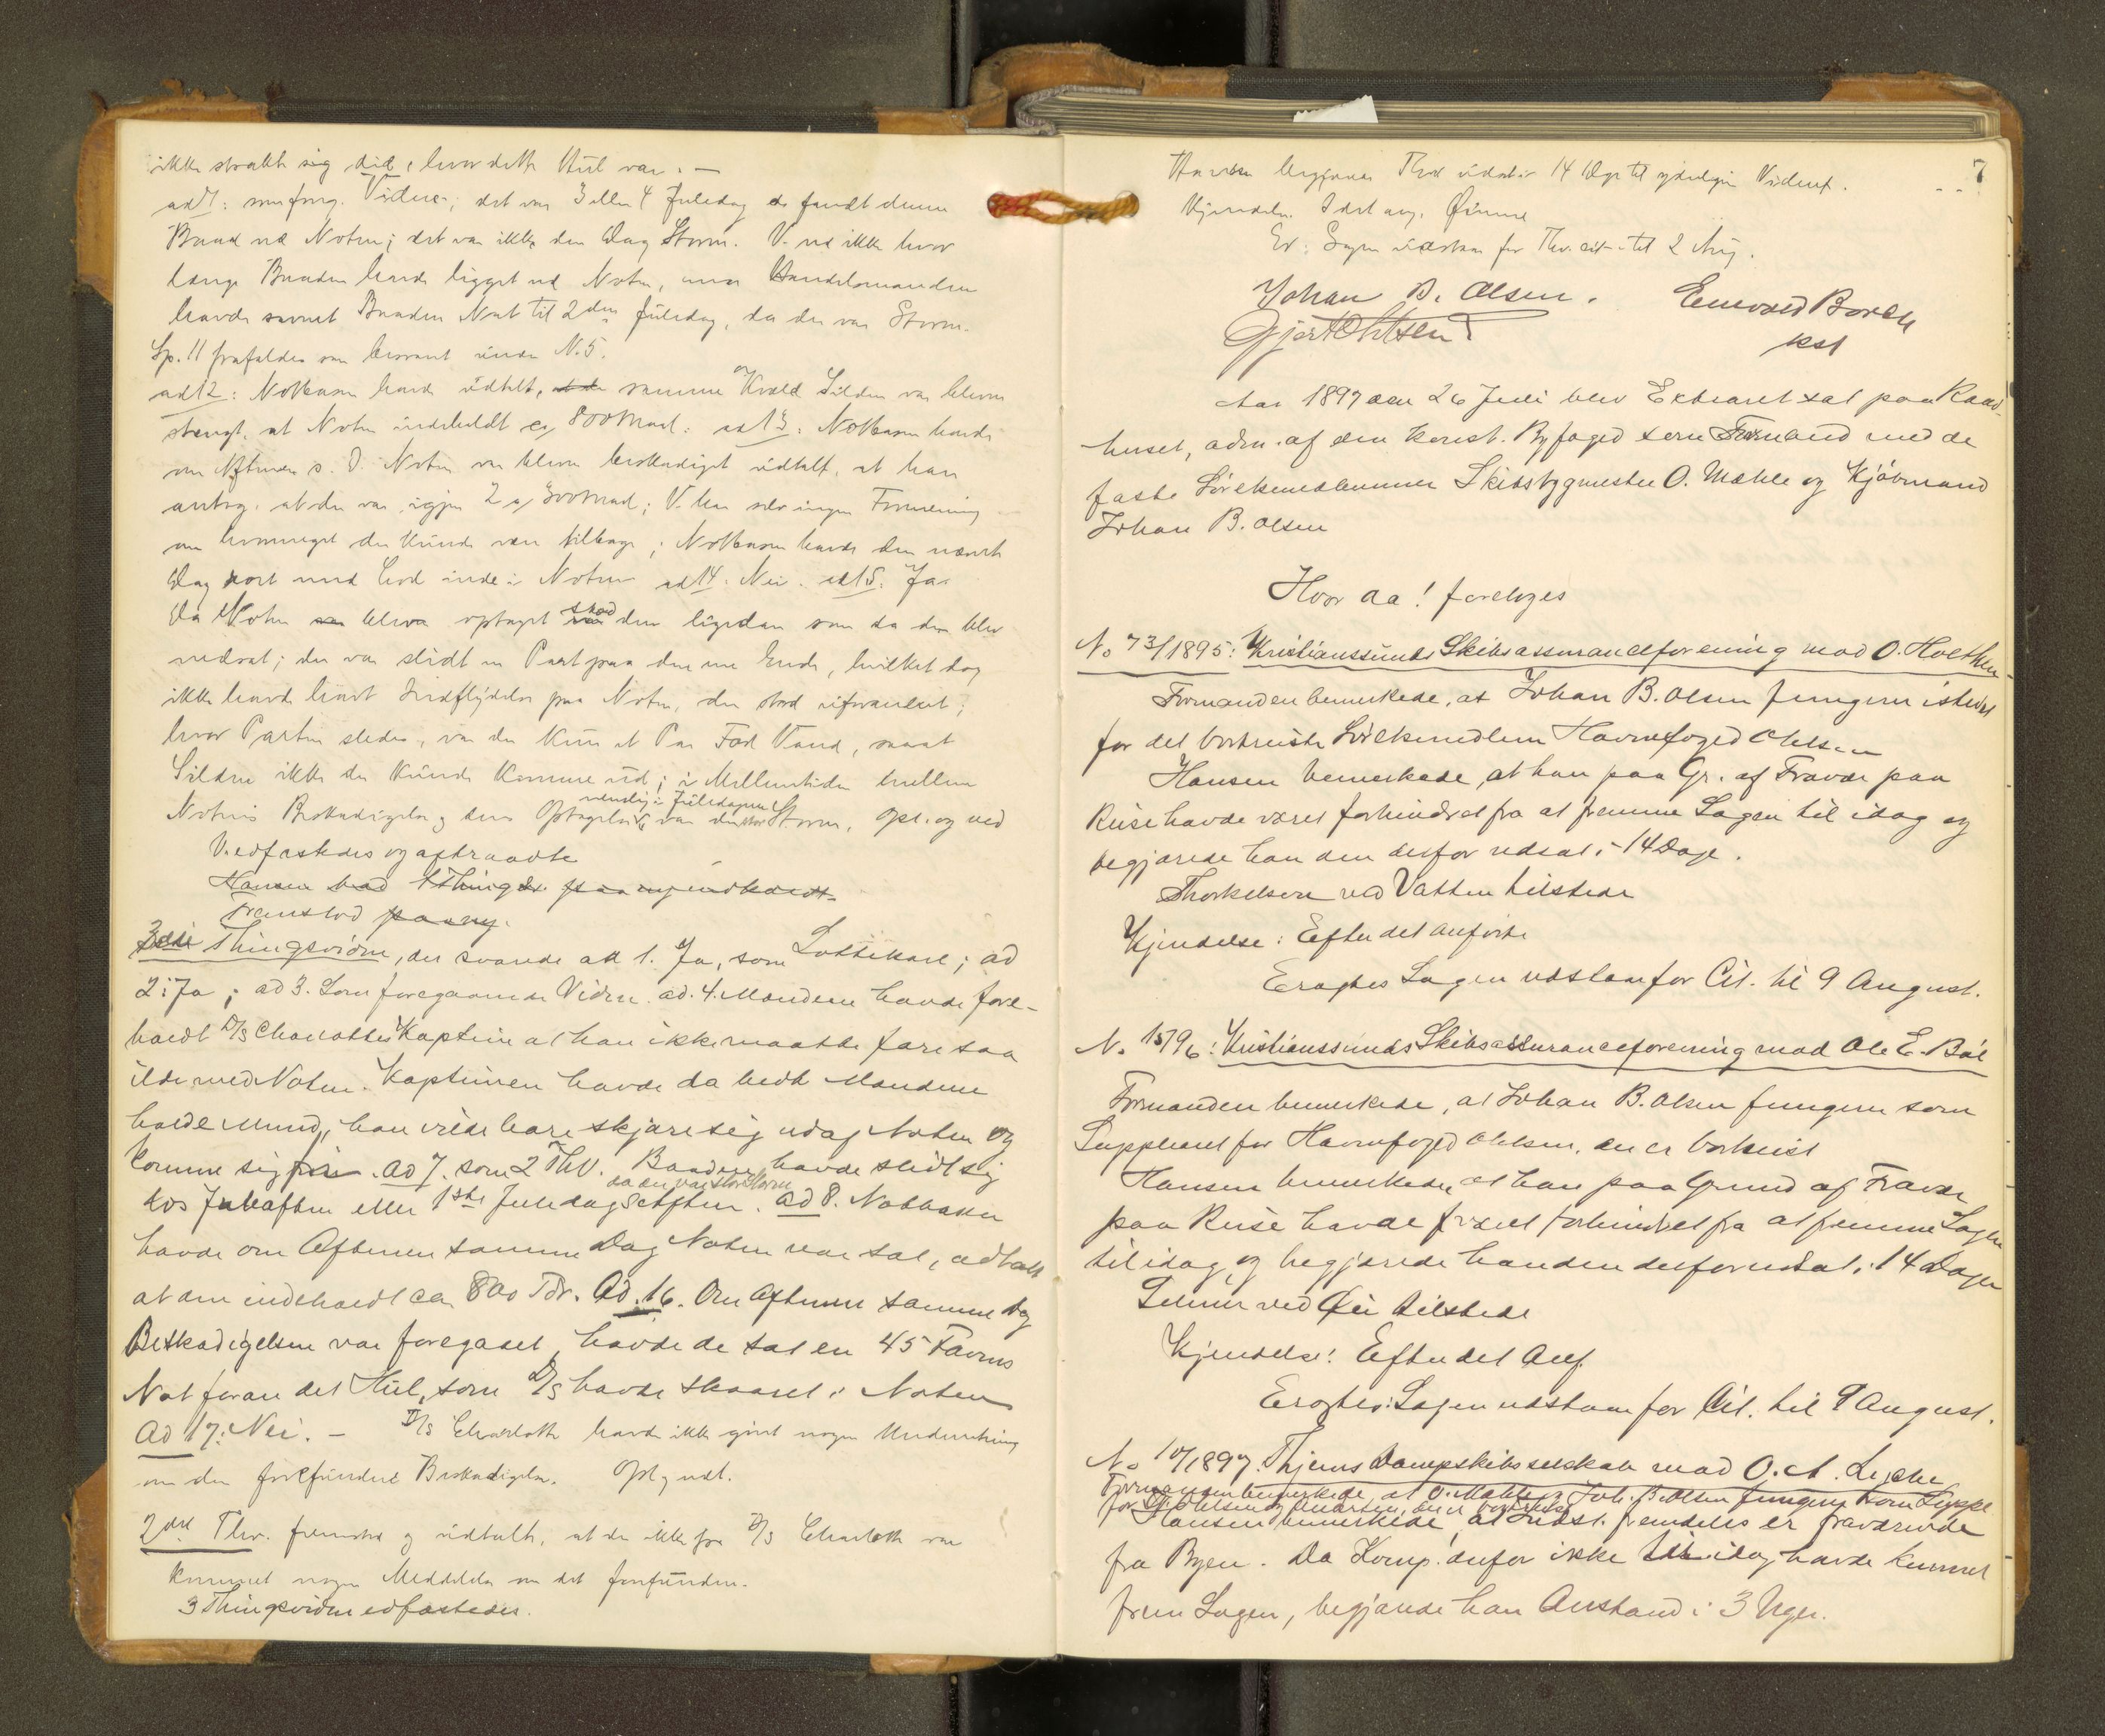 ikke strakte sig did, hvor dette Hul var. —
ad 7: som forrg. Vidne; det var 3 eller 4 Juledag de fandt denne
Baad ved Noten; det var ikke den Dag Storm. V. ved ikke hvor
længe Baaden havde ligget ved Noten, men Handelsmanden
havde savnet Baaden Nat til 2den Juledag, da der var Storm.
Sp. 11 frafaldes som besvaret under N. 5.
ad 12: Notbasen havde udtalt, samme Kvæld Silden var bleven
stængt, at Noten indeholdt ca 800 Maal. ad 13: Notbasen havde
om Aftenen s. D. Noten var bleven beskadiget udtalt, at han
antog, at der var igjen 2 a 300 Maal; V. har selv ingen Formening
om hvormeget der kunde være tilbage; Notbasen havde den næste
Dag rort med Lod inde i Noten ad 14. Nei. ad 15. Ja.
Da Noten bleve optaget stod den ligedan som da den blev
nedsat; der var slidt en Part paa den ene Ende, hvilket dog
ikke havde havt Indflydelse paa Noten, den stod uforandret;
hvor Parten sledes, var der kun et Par Favn Vand, saaat
Silden ikke der kunde komme ud; i Mellemtiden mellem
Notens Beskadigelse og dens Optagelse, nemlig i Juledagene var der stor Storm. Opl. og ved
V. edfæstedes og aftraadte
Hansen bad
Fremstod paa ny.
3die Thingsvidne, der svarede ad 1. Ja, som Lottekarl; ad
2: Ja; ad 3. Som foregaaende Vidne. ad. 4. Mandene havde fore-
holdt D/S Charlottes Kaptein at han ikke maatte fare saa
ilde med Noten. Kapteinen havde da bedt Mandene
holde Mund, han vilde bare skjære sig ud af Noten og
komme sig fri. ad 7. som 2 Thv. Baaden havde slidt sig
løs Juleaften eller 1ste Juledags Aften da der var stor Storm. ad 8. Notbasen
havde om Aftenen samme Dag Noten var sat, udtalt
at den indeholdt ca. 800 Tdr. Ad. 16. Om Aftenen samme Dag
Beskadigelsen var foregaaet, havde de sat en 45 Favns
Not foran det Hul, som D/S havde skaaret i Noten
Ad 17: Nei. — D/S Charlotte havde ikke givet nogen Underretning
om den forefundne Beskadigelse. Opl. og vedt.
2det Thv. fremstod og udtalte, at der ikke fra D/S Charlotte var
kommet nogen Meddelelse om det forefundne.
3 Thingsvidne edfæstedes.
7
Hansen begjærer Thv. udsat i 14 Dge til yderligere Vidnef.
Kjendelse. I det avg. Øiemed
Er: Sagen udstaar for Thv. cit. til 2 Aug.
Johan B. Olsen. Edvard Borch
Gjert Ohlsen kst
Aar 1897 den 26 Juli blev Extraret sat paa Raad-
huset, adm. af den konst. Byfoged som Formand med de
faste Søretsmedlemmer Skibsbygmester O. Mæhle og Kjøbmand
Johan B. Olsen
Hvor da! foretoges
No 73/1895: Kristianssunds Skibsassuranceforening mod O. Holthen
Formanden bemerkede, at Johan B. Olsen fungerer istedet
for det bortreiste Søretsmedlem Havnefoged Ohlsen
Hansen bemerkede, at han paa Gr. af Fravær paa
Reise havde været forhindret fra at fremme Sagen til idag og
begjærede han den derfor udsat i 14 Dage.
Thorkelsen ved Vatten tilstede
Kjendelse: Efter det anførte
Eragtes Sagen udstaar for Cit. til 9 August.
No 15/96: Kristianssunds Skibsassuranceforening mod Ole E. Bøe
Formanden bemerkede, at Johan B. Olsen fungerer som
Suppleant for Havnefoged Ohlsen, der er bortreist
Hansen bemerkede, at han paa Grund af Fravær
paa Reise havde været forhindret fra at fremme Sagen
til idag, og begjærede han den derfor udsat i 14 Dager
Selmer ved Øie tilstede
Kjendelse: Efter det Anf.
Eragtes: Sagen udstaar for Cit. til 9 August.
No 10/1897. Thjems Dampskibsselskab mod O. A. Lyche
Formanden bemerkede, at O. Mæhle og Joh. B. Olsen fungerer som Suppl.
for Ohlsen og der er bortreist
Hansen bemerkede, at Indst. fremdeles er fraværende
fra Byen. Da Komp. derfor ikke idag havde kunnet
frem. Sagen, begjærede han Anstand i 3 Uger.